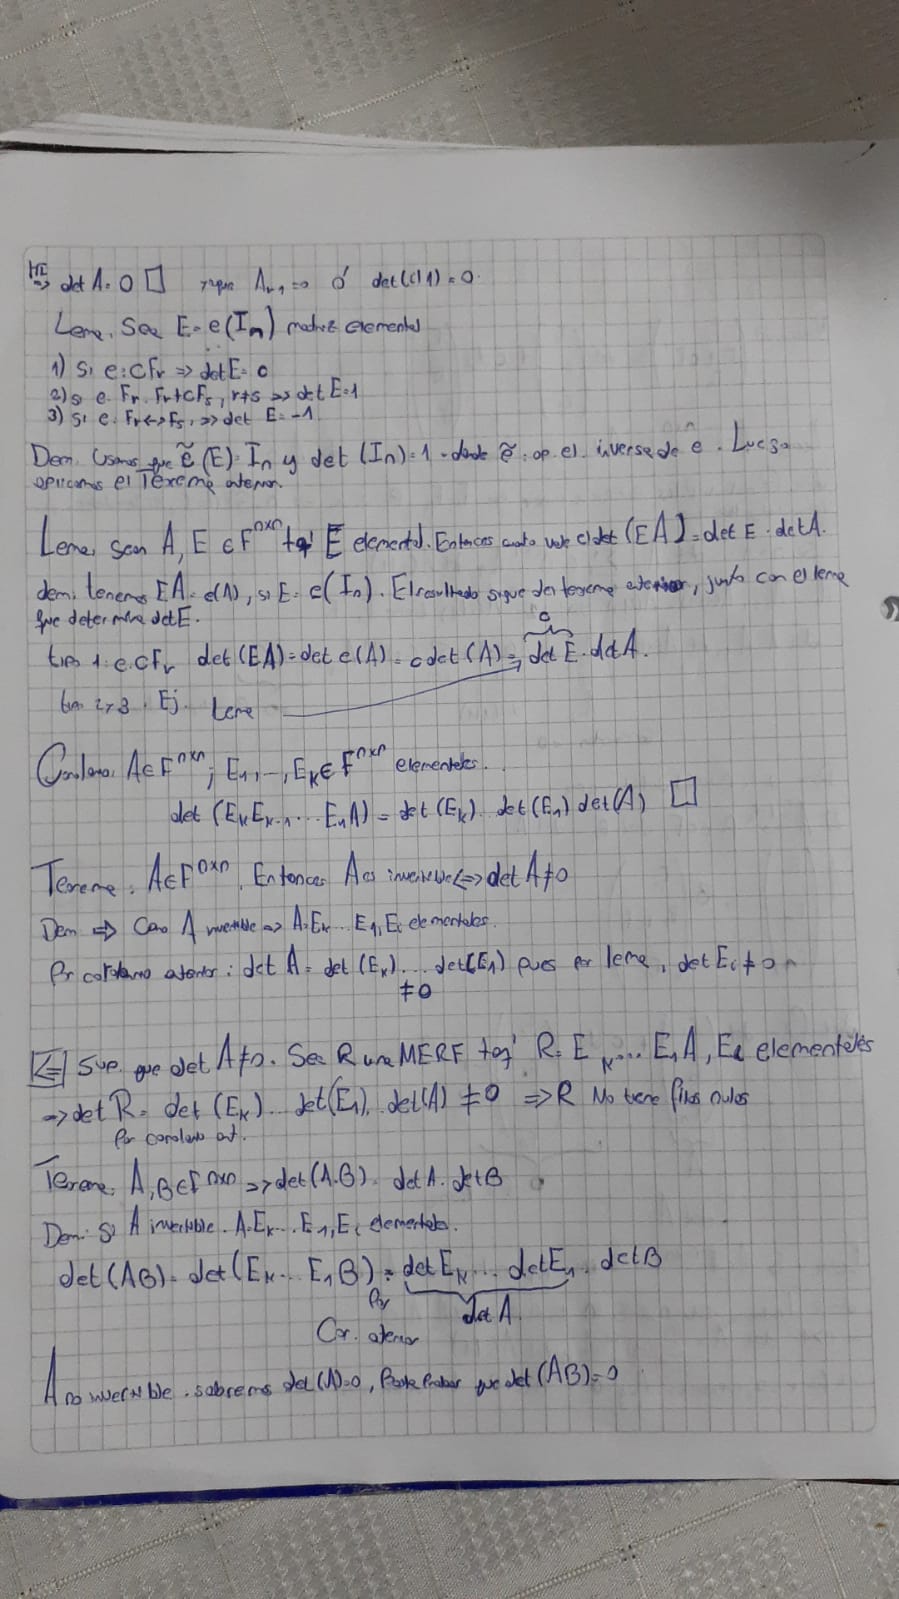 HI => det A = 0 □ A_{r1} = 0 ó det(A(1|1)) = 0
Lema. Sea E = e(I_n) matriz elemental
1) Si e: cF_r => det E = c
2) si e: F_r: F_r + cF_s, r≠s => det E = 1
3) si e: F_r <-> F_s, => det E = -1
Dem. Usamos que ẽ(E) = I_n y det(I_n) = 1 donde ẽ: op. el. inversa de e. Luego
aplicamos el Teorema anterior.
Lema, sean A, E ∈ F^{nxn} tq' E elemental. Entonces cuanto vale el det (EA) = det E · det A.
dem: tenemos EA = e(A), si E = e(I_n). El resultado sigue del teorema anterior, junto con el lema
que determina det E.
c
tipo 1: e: cF_r det(EA) = det e(A) = c det(A) = det E · det A.
tipo 2 y 3. Ej. Lema
Corolario. A ∈ F^{nxn}; E_1, --, E_k ∈ F^{nxn} elementales.
det (E_k E_{k-1} ... E_1 A) = det(E_k) · det(E_1) det(A) □
Teorema: A ∈ F^{nxn}. Entonces A es invertible <=> det A ≠ 0
Dem => Como A invertible => A = E_k ... E_1, E_i elementales.
Por corolario anterior: det A = det (E_k) ... det(E_1) pues por lema, det E_i ≠ 0
≠ 0
<= Sup. que det A ≠ 0. Sea R una MERF tq' R = E_k ... E_1 A, E_i elementales
=> det R = det (E_k) ... det(E_1) · det(A) ≠ 0 => R No tiene filas nulas
Por corolario ant.
Teorema, A, B ∈ F^{nxn} => det(A·B) = det A · det B
Dem: Si A invertible. A = E_k ... E_1, E_i elementales.
det(AB) = det(E_k ... E_1 B) = det E_k ... det E_1 · det B
Por det A
Cor. anterior
A no invertible. sabemos det(A) = 0, Basta Probar que det(AB) = 0